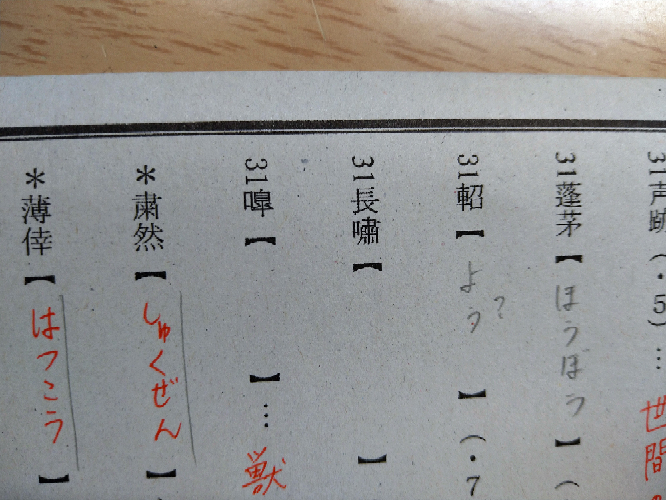 31声跡(・5)…世間
31蓬茅【ほうぼう】(
31軺【よう?】(・7
31長嘯【】
31嘷【】…獣
*粛然【しゅくぜん】(
*薄倖【はつこう】